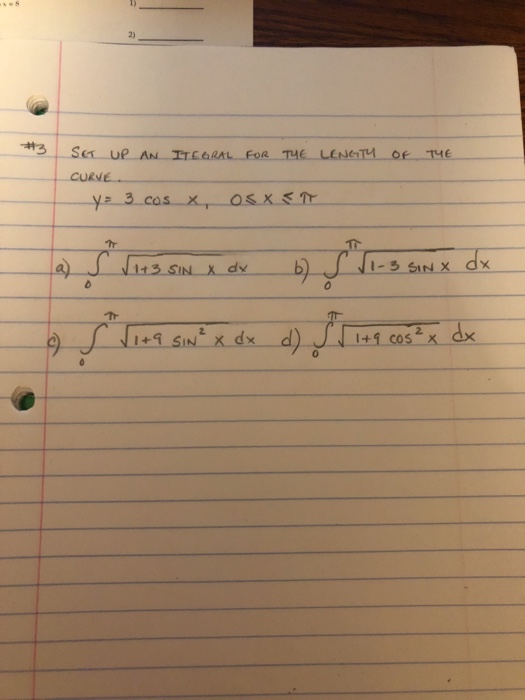 x = 8
1)
2)
#3 SET UP AN ITEGRAL FOR THE LENGTH OF THE
CURVE.
y = 3 cos x, 0 ≤ x ≤ π
a) ∫₀^π √(1+3 SIN x) dx b) ∫₀^π √(1-3 SIN x) dx
c) ∫₀^π √(1+9 SIN² x) dx d) ∫₀^π √(1+9 cos² x) dx